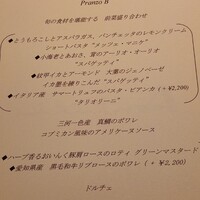 Pranzo B
旬の食材を堪能する 前菜盛り合わせ
◆とうもろこしとアスパラガス、パンチェッタのレモンクリーム
ショートパスタ
◆小海老とあおさ、茸のアーリオ・オーリオ
"スパゲッティ"
◆紋甲イカとアーモンド 大葉のジェノベーゼ
イカ墨を練りこんだ "スパゲッティ"
◆イタリア産 サマートリュフのパスタ・ビアンカ (+ ¥2,200)
"タリオリーニ"
三河一色産 真鯛のポワレ
コブミカン風味のアメリケーヌソース
◆ハーブ香るおいしく豚肩ロースのロティ グリーンマスタード
◆愛知県産 黒毛和牛リブロースのポワレ (+ ¥2,200)
ドルチェ